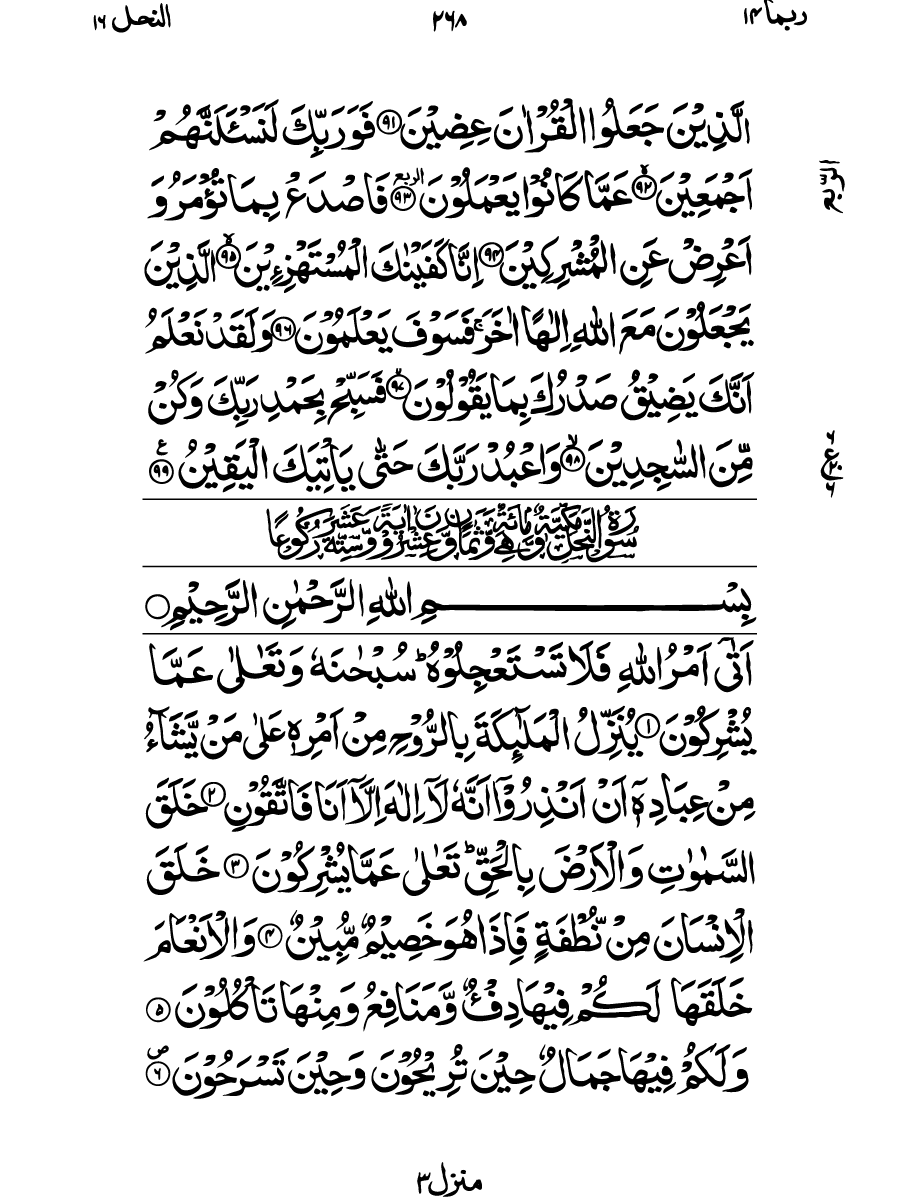 ربما ١٤ ٢٦٨ النحل ١٦
الَّذِيْنَ جَعَلُوا الْقُرْاٰنَ عِضِيْنَ ﴿٩١﴾ فَوَرَبِّكَ لَنَسْـَٔلَنَّهُمْ
اَجْمَعِيْنَ ﴿٩٢﴾ۙ عَمَّا كَانُوْا يَعْمَلُوْنَ ﴿٩٣﴾ الربع فَاصْدَعْ بِمَا تُؤْمَرُ وَ
الربع
اَعْرِضْ عَنِ الْمُشْرِكِيْنَ ﴿٩٤﴾ اِنَّا كَفَيْنٰكَ الْمُسْتَهْزِءِيْنَ ﴿٩٥﴾ۙ الَّذِيْنَ
يَجْعَلُوْنَ مَعَ اللّٰهِ اِلٰهًا اٰخَرَ ۚ فَسَوْفَ يَعْلَمُوْنَ ﴿٩٦﴾ وَلَقَدْ نَعْلَمُ
اَنَّكَ يَضِيْقُ صَدْرُكَ بِمَا يَقُوْلُوْنَ ﴿٩٧﴾ۙ فَسَبِّحْ بِحَمْدِ رَبِّكَ وَكُنْ
مِّنَ السّٰجِدِيْنَ ﴿٩٨﴾ۙ وَاعْبُدْ رَبَّكَ حَتّٰى يَاْتِيَكَ الْيَقِيْنُ ﴿٩٩﴾ ع
٦ ع ٢٠ ٦
سُوْرَةُ النَّحْلِ مَكِّيَّةٌ وَّهِيَ مِائَةٌ وَّثَمَانٍ وَّعِشْرُوْنَ اٰيَةً وَّسِتَّةَ عَشَرَ رُكُوْعًا
بِسْمِ اللّٰهِ الرَّحْمٰنِ الرَّحِيْمِ
اَتٰٓى اَمْرُ اللّٰهِ فَلَا تَسْتَعْجِلُوْهُ ؕ سُبْحٰنَهٗ وَتَعٰلٰى عَمَّا
يُشْرِكُوْنَ ﴿١﴾ يُنَزِّلُ الْمَلٰٓئِكَةَ بِالرُّوْحِ مِنْ اَمْرِهٖ عَلٰى مَنْ يَّشَآءُ
مِنْ عِبَادِهٖٓ اَنْ اَنْذِرُوْٓا اَنَّهٗ لَآ اِلٰهَ اِلَّآ اَنَا فَاتَّقُوْنِ ﴿٢﴾ خَلَقَ
السَّمٰوٰتِ وَالْاَرْضَ بِالْحَقِّ ؕ تَعٰلٰى عَمَّا يُشْرِكُوْنَ ﴿٣﴾ خَلَقَ
الْاِنْسَانَ مِنْ نُّطْفَةٍ فَاِذَا هُوَ خَصِيْمٌ مُّبِيْنٌ ﴿٤﴾ وَالْاَنْعَامَ
خَلَقَهَا لَكُمْ فِيْهَا دِفْءٌ وَّمَنَافِعُ وَمِنْهَا تَاْكُلُوْنَ ﴿٥﴾
وَلَكُمْ فِيْهَا جَمَالٌ حِيْنَ تُرِيْحُوْنَ وَحِيْنَ تَسْرَحُوْنَ ﴿٦﴾ ص
منزل ٣